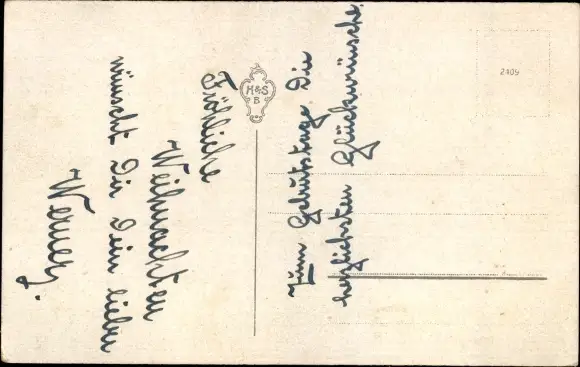 Fröhliche
Weihnachten
wünscht Dir Dein lieber
Werner.
Zum Geburtstage Die
herzlichsten Glückwünsche.
M&S
B
2409